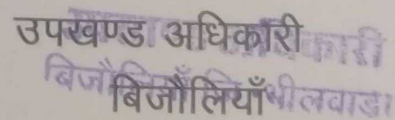 उपखण्ड अधिकारी
बिजौलियाँ भीलवाडा